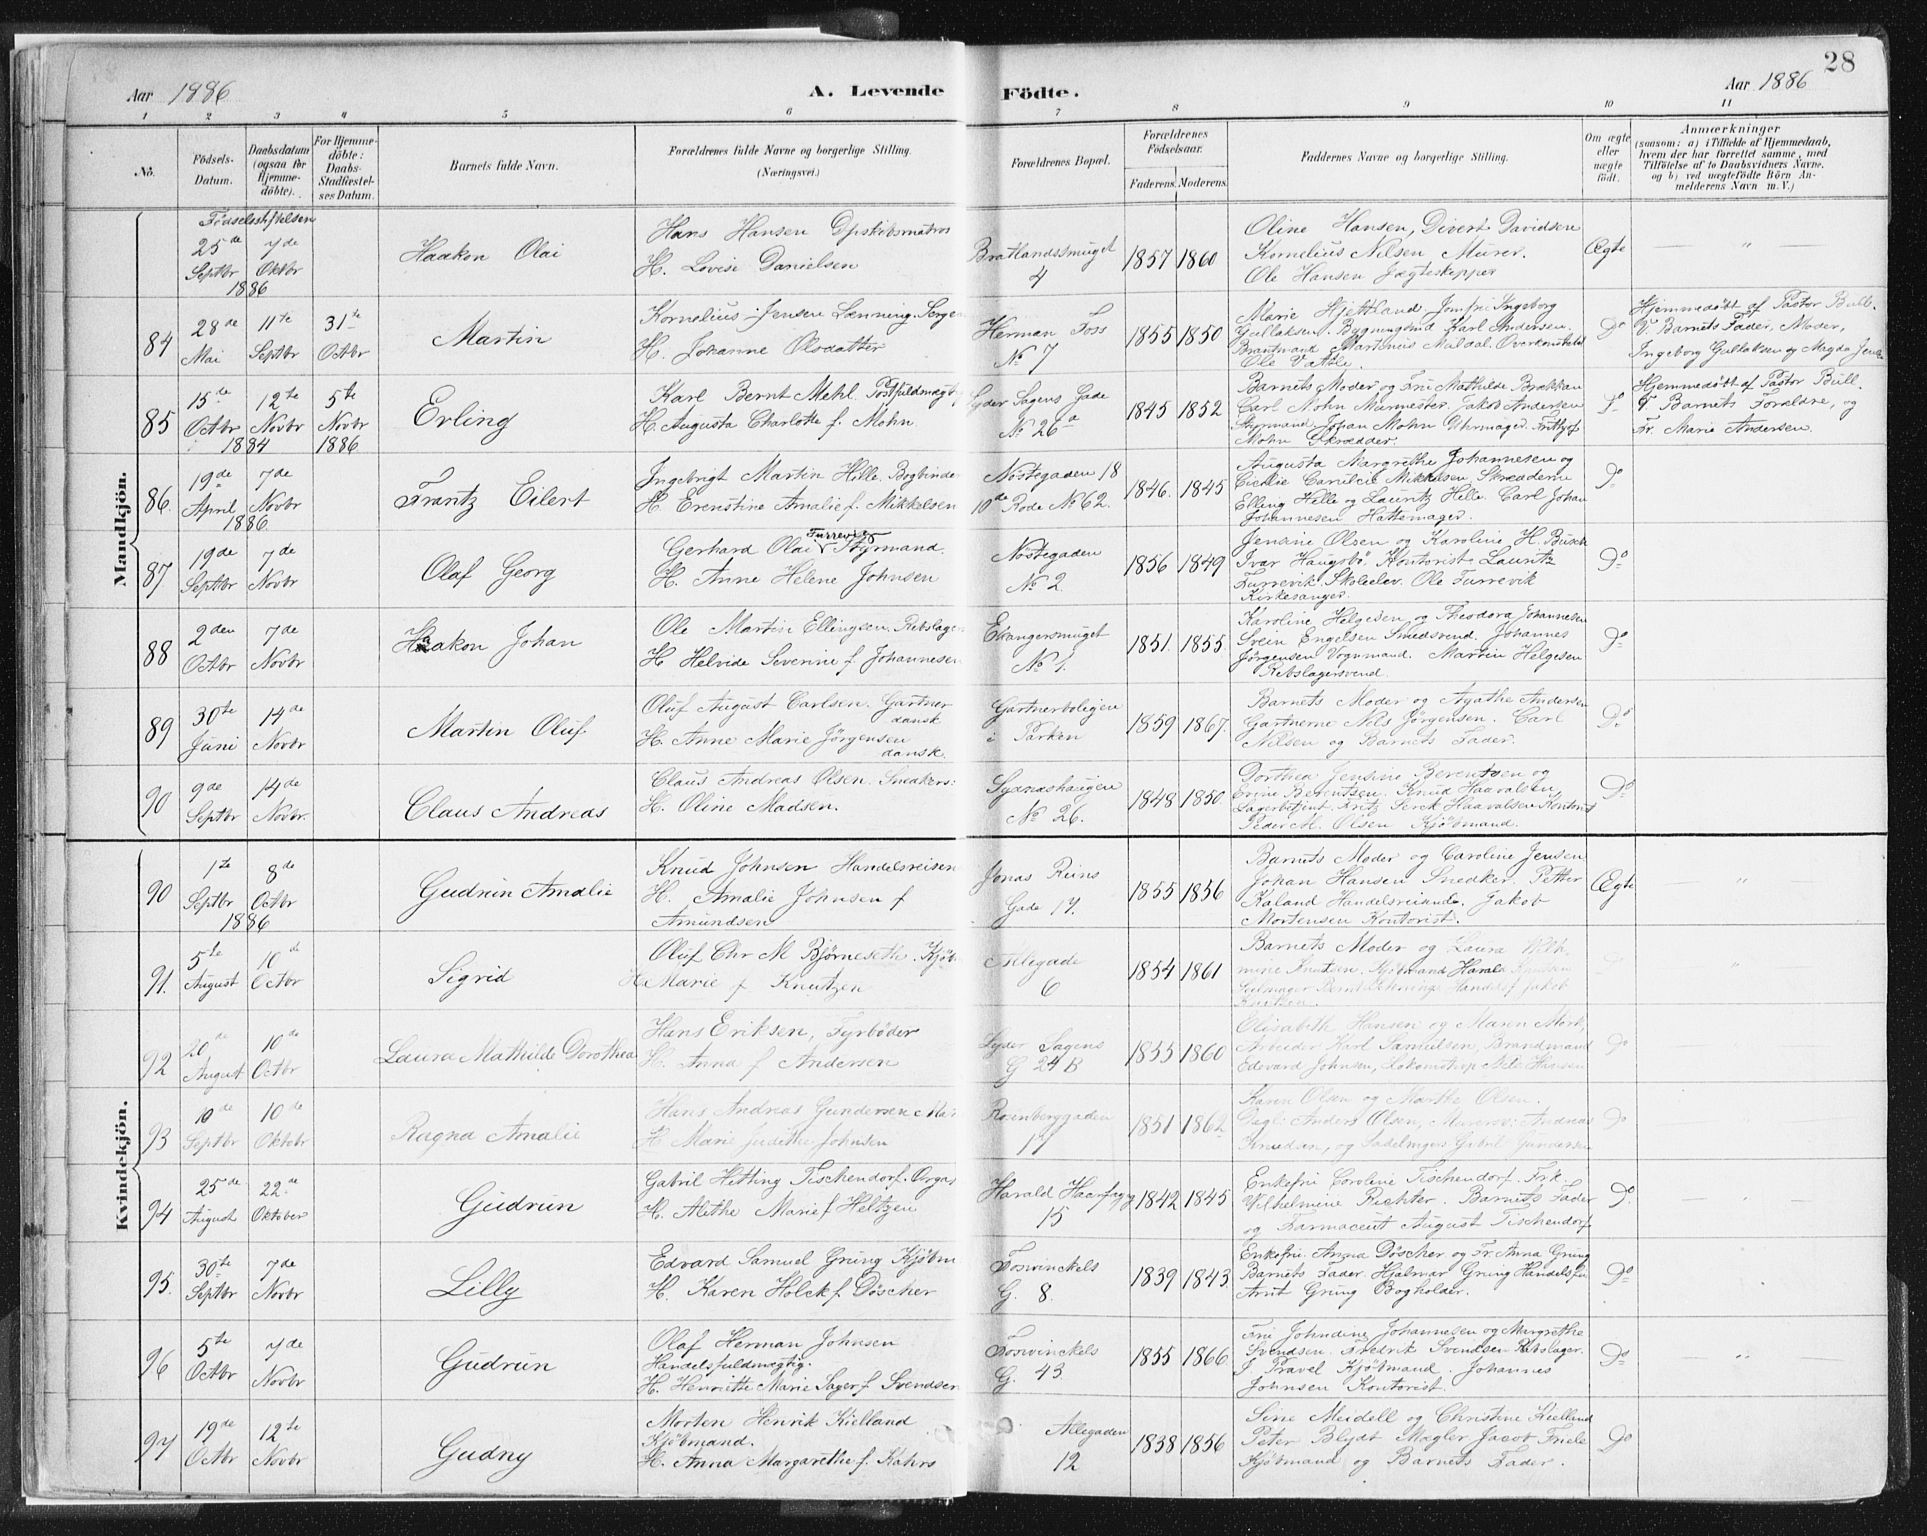 Aar 1886
A. Levende Födte.
Aar 1886
28
1 2 3 4 5 6 7 8 9 10 11
No.
Födsels-
Datum.
Daabsdatum
(ogsaa for
Hjemme-
döbte).
For Hjemme-
döbte:
Daabs-
Stadfæstel-
ses Datum.
Barnets fulde Navn.
Forældrenes fulde Navne og borgerlige Stilling.
(Næringsvei.)
Forældrenes Bopæl.
Forældrenes
Födselsaar.
Faderens. Moderens.
Faddernes Navne og borgerlige Stilling.
Om ægte
eller
uægte
født.
Anmærkninger
(saasom: a) i Tilfælde af Hjemmedaab,
hvem der har forrettet samme, med
Tilföielse af to Daabsvidners Navne.
og b) ved uægtefödte Börn An-
melderens Navn m. V.)
Mandkjön.
Fødselsstiftelsen
25de Septbr 1886
7de Oktbr
Haakon Olai
Hans Hansen
H. Lovise Danielsen
Bratlandssmuget
4
1857 1860
Oline Hansen, Divert Davidsen
Kornelius Nilsen Murer.
Ole Hansen Jægteskipper
Ægte
84
28de Mai
11te Septbr
31te Octbr
Martin
Kornelius Jensen Lænning
H. Johanne Olsdatter
Herman Foss
No 7
1855 1850
Marie Hjettland Jomfru Ingeborg
Gullaksen Karl Andersen
Brantmand Martinus Muldal
Ole Vatle
Do
Hjemmedøbt af Pastor Bull.
V. Barnets Fader, Moder,
Ingeborg Gullaksen og Magda
85
15de Octbr 1884
12te Novbr
5te Novbr 1886
Erling
Karl Bernt Mehl
H. Augusta Charlotte f. Mohn
Lyder Sagens Gade
No 26a
1845 1852
Barnets Moder og Fru Mathilde Brækkan
Carl Mohn Jakob Andersen
Styrmand Johan Mohn Uhrmager
Mohn Skrædder.
Do
Hjemmedøbt af Pastor Bull.
V. Barnets Forældre, og
Fr. Marie Andersen.
86.
19de April 1886
7de Novbr
Frantz Eilert
Ingebrigt Martin Hille. Bogbinde
H. Erenstine Amalie f. Mikkelsen
Nøstegaden 18
10de Rode No 62.
1846. 1845
Augusta Margrethe Johannesen og
Mikkelsen, Skræderne
Elling Hille og Lauritz Hille. Carl Johan
Johannesen Hattemager.
Do
87
19de Septbr
7de Novbr
Olaf Georg
Gerhard Olai Furrevig Styrmand.
H. Anne Helene Johnsen
Nøstegaden
No 2.
1856 1849
Jensine Olsen og Karoline H. Busch
Ivar Haugsbö Kontorist Lauritz
Furrevik Skoleelev. Ole Furrevik
Kirkesanger.
Do
88
2den Octbr
7de Novbr
Haakon Johan
Ole Martin Ellingsen. Rebslager
H. Helvide Severine f. Johannesen
Ekangersmuget
No 1.
1851. 1855.
Karoline Helgesen og Theodora Johannesen
Svein Engelsen Smedsvend. Johannes
Jørgensen Vognmand. Martin Helgesen
Rebslagersvend.
Do
89
30te Juni
14de Novbr
Martin Oluf
Oluf August Carlsen. Gartner
dansk
H. Anne Marie Jørgensen
dansk.
Gartnerboligen
i Parken
1859 1867.
Barnets Moder og Agathe Andersen
Gartnerne Nils Jørgensen. Carl
Nilsen og Barnets Fader.
Do
90
9de Septbr
14de Novbr.
Claus Andreas
Claus Andreas Olsen. Snedkers:
H. Oline Madsen.
Sydnæshaugen
No 26.
1848 1850
Dorthea Jensine Berentsen og
Berentsen. Knud Haavalsen
Haavalsen Kontorist
Peder M. Olsen Kjøbmand.
Do
Kvindekjön.
90
1te Septbr 1886
8de Octbr
Gudrun Amalie
Knud Johnsen Handelsreisen
H. Amalie Johnsen f
Amundsen
Jonas Reins
Gade 17.
1855 1856
Barnets Moder og Caroline Jensen
Johan Hansen Snedker. Petter
Kaland Handelsreisende. Jakob
Mortensen Kontorist.
Ægte
91.
5te August
10de Octbr
Sigrid
Oluf Chr M Bjørnesethe. Kjøb
H. Marie f Knutzen
Allegade
6
1854 1861
Barnets Moder og Laura Wilh
mine Knutsen, Kjøbmand Harald
92
20de August
10de Octbr
Laura Mathilde Dorothea
Hans Eriksen, Fyrbøder
H. Anna f Andersen
Lyder Sagens
G 24 B
1855 1860
Elisabeth Hansen og Maren Mork
Arbeider Karl Samuelsen, Brandmand
Edevard Johnsen, Hansen
Do
93
10de Septbr
10de Oktobr
Ragna Amalie
Hans Andreas Gundersen
H. Marie Judithe Johnsen
Rosenberggaden
17
1851 1862
Karen Olsen og Marthe Olsen.
Dagl: Anders Olsen, Andreas
Knudsen, og Gabril Gundersen
Do
94
25de August
22de Oktober
Gudrun
Gabril Hitting Tischendorf.
H. Alethe Marie f Heltzen
Harald Haarfagg
15
1842 1845
Enkefru Caroline Tischendorf. Frk.
Wilhelmine Richter. Barnets Fader
og Farmaceut August Tischendorf
Do
95.
30te Septbr
7de Novbr
Lilly
Edvard Samuel Grung Kjøbm
H. Karen Holck f. Døscher
Fosvinckels
G. 8.
1839 1843.
Enkefru Anna Døscher og Fr. Anna Grung
Barnets Fader. Hjalmar Grung
Arnt Grung Bogholder.
Do
96
5te Octbr
7de Novbr
Gudrun
Olaf Herman Johnsen
Handelsfuldmægtig.
H. Henriette Marie Sager f. Svendsen
Fosvinckels
G. 43
1855 1866.
Fru Johndine Johannesen og Margrethe
Svendsen. Fredrik Svendsen Rebslager.
J. Travel Kjøbmand. Johannes
Johnsen Kontorist.
Do
97
19de Octbr
12te Novbr
Gudny
Morten Henrik Kielland
Kjøbmand.
H. Anna Margarethe f. Kahrs
Allegaden
12
1838 1856
Sine Meidell og Christine Kielland
Peter Blydt Mægler Jacob Friele
Kjøbmand og Barnets Fader.
Do